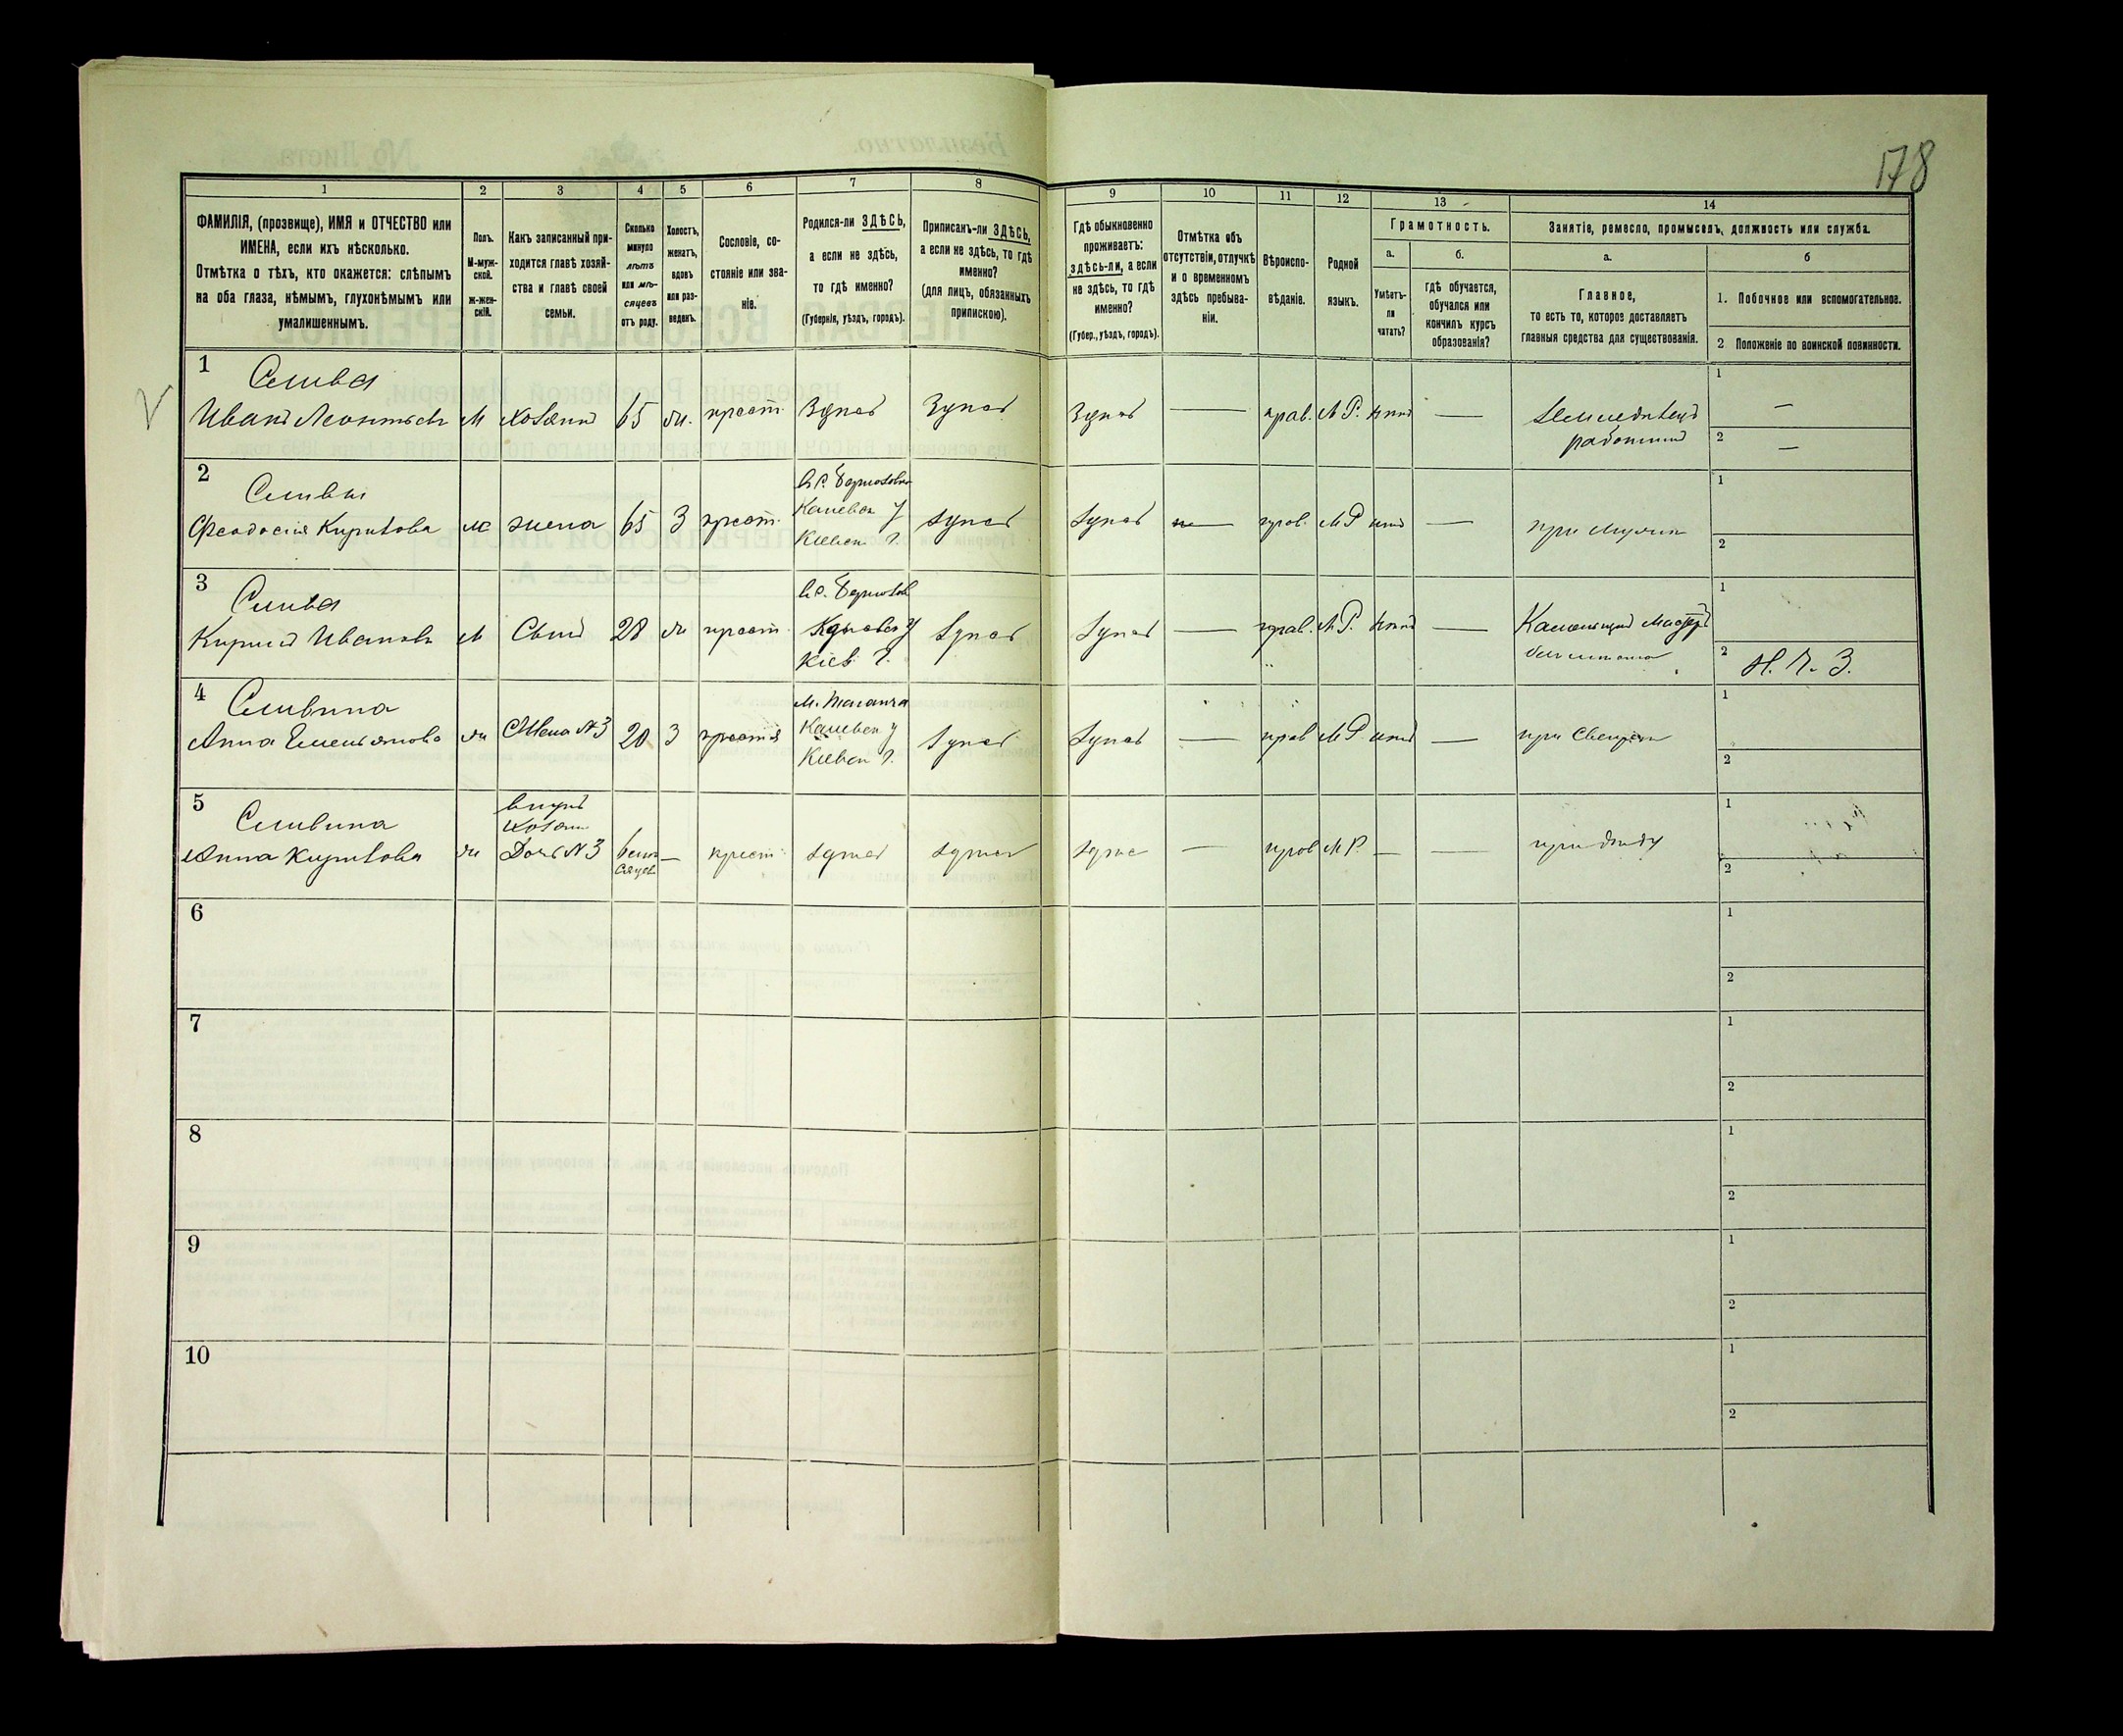 178
1 2 3 4 5 6 7 8 9 10 11 12 13 14
ФАМИЛІЯ, (прозвище), ИМЯ и ОТЧЕСТВО или
ИМЕНА, если ихъ нѣсколько.
Отмѣтка о тѣхъ, кто окажется: слѣпымъ
на оба глаза, нѣмымъ, глухонѣмымъ или
умалишеннымъ.
Полъ.
М-муж-
ской.
ж-жен-
скій.
Какъ записанный при-
ходится главѣ хозяй-
ства и главѣ своей
семьи.
Сколько
минуло
лѣтъ
или мѣ-
сяцевъ
отъ роду.
Холостъ,
женатъ,
вдовъ
или раз-
веденъ.
Сословіе, со-
стояніе или зва-
ніе.
Родился-ли ЗДѢСЬ,
а если не здѣсь,
то гдѣ именно?
(Губернія, уѣздъ, городъ).
Приписанъ-ли ЗДѢСЬ,
а если не здѣсь, то гдѣ
именно?
(для лицъ, обязанныхъ
припискою).
Гдѣ обыкновенно
проживаетъ:
здѣсь-ли, а если
не здѣсь, то гдѣ
именно?
(Губер., уѣздъ, городъ).
Отмѣтка объ
отсутствіи, отлучкѣ
и о временномъ
здѣсь пребыва-
ніи.
Вѣроиспо-
вѣданіе.
Родной
языкъ.
Грамотность.
а.
Умѣетъ-
ли
читать?
б.
гдѣ обучается,
обучался или
кончилъ курсъ
образованія?
Занятіе, ремесло, промыселъ, должность или служба.
а.
Главное,
то есть то, которое доставляетъ
главныя средства для существованія.
б
1. Побочное или вспомогательное.
2 Положеніе по воинской повинности.
1 Слива
Иванъ Леонтьевъ М хозяинъ 65 ж. крест. Здѣсь Здѣсь Здѣсь — прав. М Р. — 1 —
работникъ 2 —
2 Сливы
Феодосія Кирилова ж жена 65 З крест. Каневск у Кіевск Г. здѣсь здѣсь — прав. М Р — 1 2
3 Слива
Кирилъ Ивановъ М Сынъ 28 ж крест. Каневск у Кіев Г. здѣсь здѣсь — прав. М Р. — 1
2 Н. Ч. З.
4 Сливина
Анна Емельянова ж Жена N3 20 З крест. М. Таганча Каневск у Кіевск Г. здѣсь здѣсь — прав М Р — 1 2
5 Сливина
Анна Кирилова ж Дочь N3 6 мѣ сяцев — крест здѣсь здѣсь здѣсь — прав М Р. — — при дѣду 1 2
6 1 2
7 1 2
8 1 2
9 1 2
10 1 2